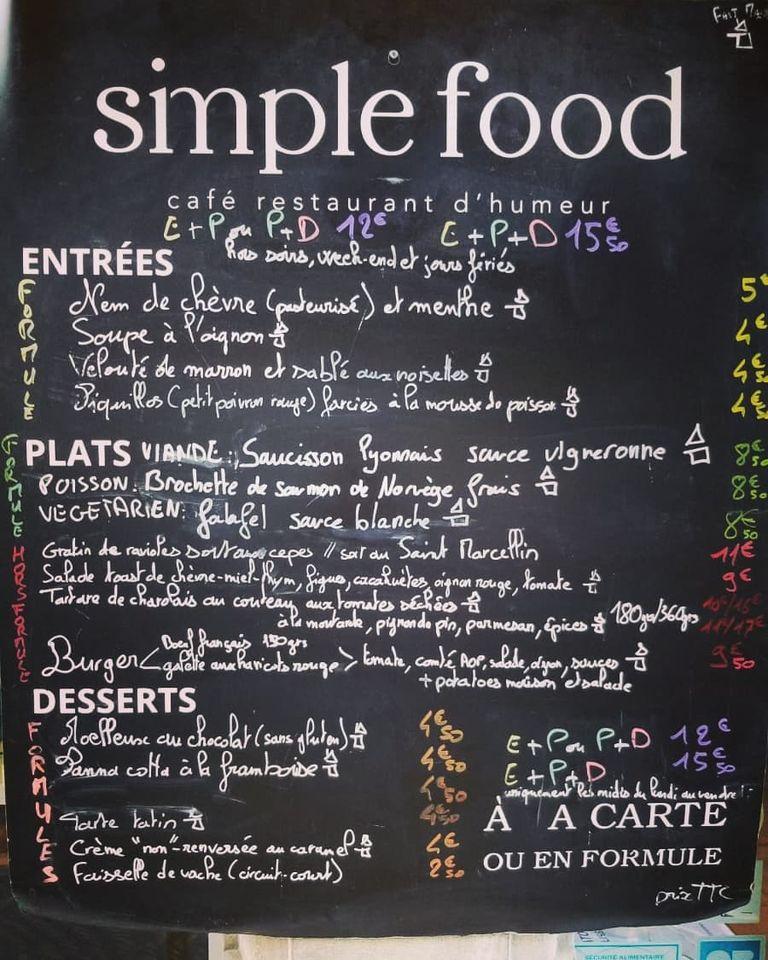 Fait Mai
simple food
café restaurant d'humeur
E+P ou P+D 12€ E+P+D 15€50
Hors soirs, week-end et jours fériés
ENTRÉES
FORMULE
Nem de chèvre (pasteurisé) et menthe 5€
Soupe à l'oignon 4€
Velouté de marron et sablé aux noisettes 4€50
Piquillos (petit poivron rouge) farcies à la mousse de poisson 4€50
FORMULE
PLATS VIANDE: Saucisson lyonnais sauce vigneronne 8€50
POISSON: Brochette de saumon de Norvège frais 8€50
VEGETARIEN: falafel sauce blanche 8€50
HORS FORMULE
Gratin de ravioles soit aux cepes // soit au Saint Marcellin 11€
Salade toast de chèvre-miel-thym, figues, cacahuètes, oignon rouge, tomate 9€
Tartare de charolais au couteau aux tomates séchées
à la moutarde, pignon de pin, parmesan, épices 180grs/360grs
Burger < Boeuf français 150grs
galette aux haricots rouge > tomate, comté AOP, salade, oignon, sauces 9€50
+ potatoes maison et salade
DESSERTS
FORMULES
Moelleux au chocolat (sans gluten) 4€50
Panna cotta à la framboise 4€50
4€50
Tarte tatin 4€50
Crème "non"-renversée au caramel 4€
Faisselle de vache (circuit-court) 2€50
E+P ou P+D 12€
E+P+D 15€50
uniquement les midis du lundi au vendre
À A CARTE
OU EN FORMULE
prix TTC
SÉCURITÉ ALIMENTAIRE